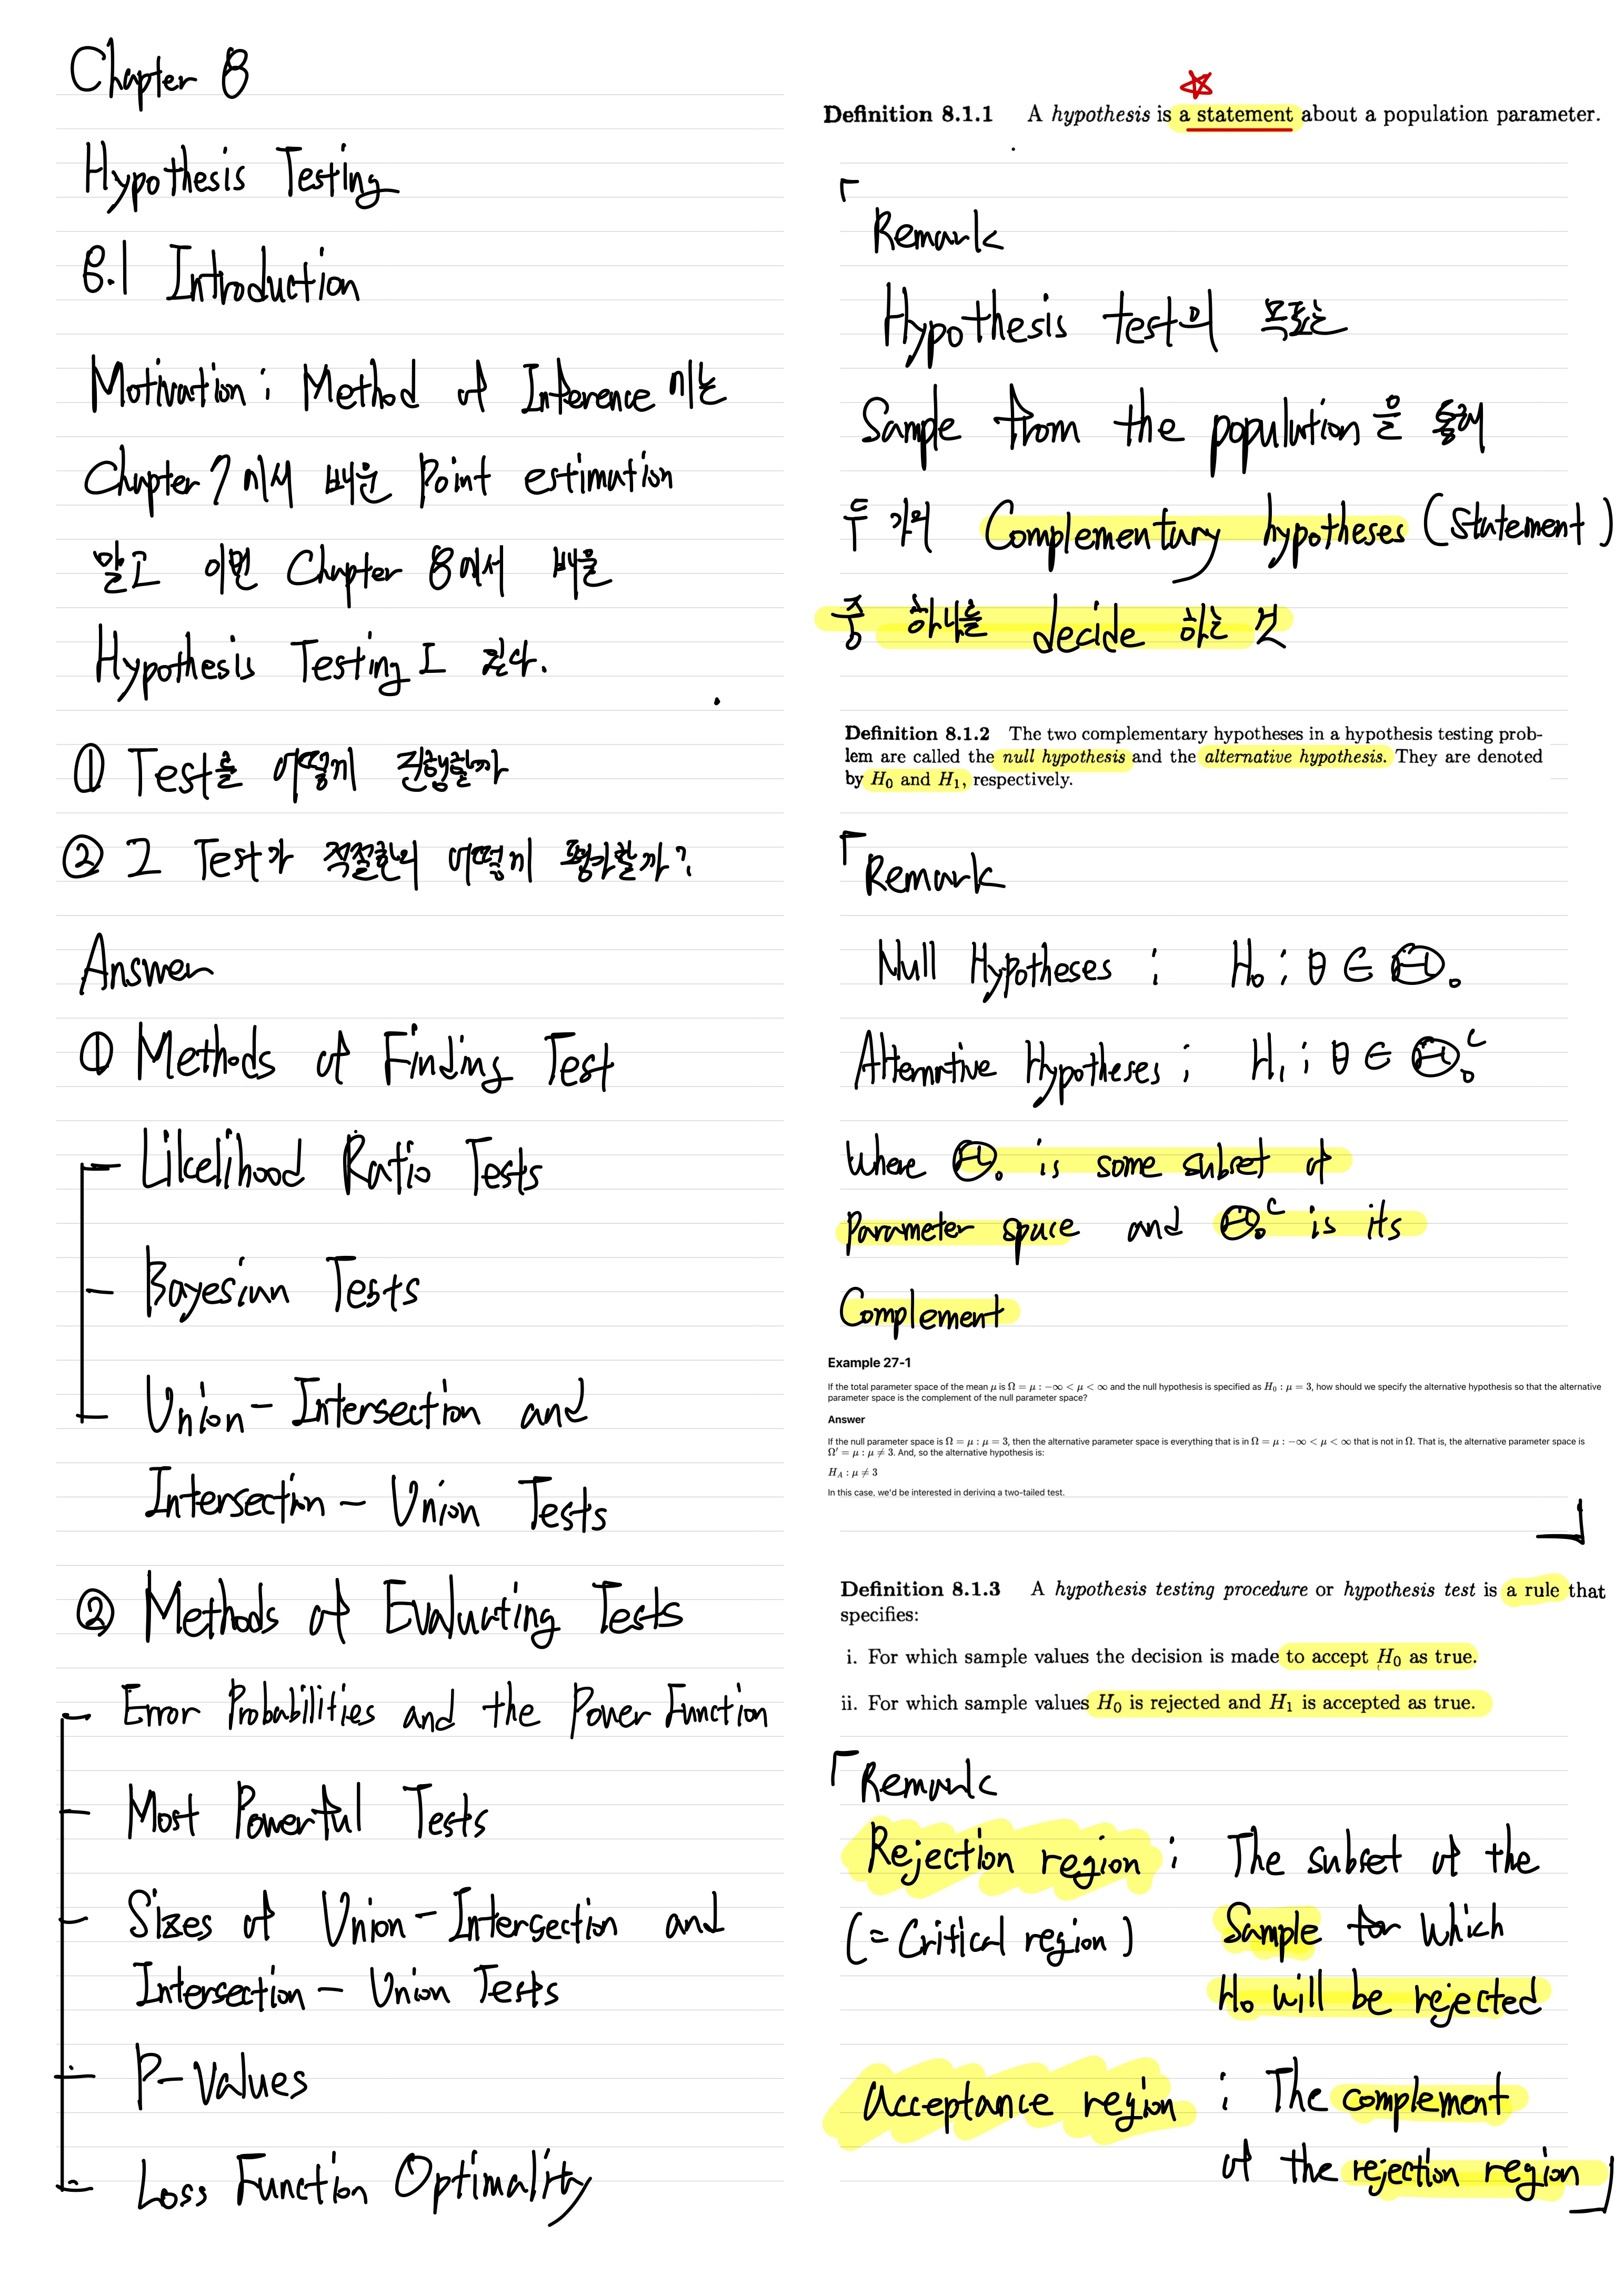 Chapter 8
Hypothesis Testing
8.1 Introduction
Motivation : Method of Inference 에는
Chapter 7에서 배운 Point estimation
말고 이번 Chapter 8에서 배울
Hypothesis Testing도 있다.
① Test를 어떻게 진행할까
② 그 Test가 적절한지 어떻게 평가할까?
Answer
① Methods of Finding Test
Likelihood Ratio Tests
Bayesian Tests
Union-Intersection and
Intersection-Union Tests
② Methods of Evaluating Tests
Error Probabilities and the Power Function
Most Powerful Tests
Sizes of Union-Intersection and
Intersection-Union Tests
P-Values
Loss Function Optimality
Definition 8.1.1 A hypothesis is a statement about a population parameter.
「Remark
Hypothesis test의 목표는
Sample from the population을 통해
두 개의 Complementary hypotheses (Statement)
중 하나를 decide 하는 것
Definition 8.1.2 The two complementary hypotheses in a hypothesis testing prob-
lem are called the null hypothesis and the alternative hypothesis. They are denoted
by H₀ and H₁, respectively.
「Remark
Null Hypotheses : H₀ : θ ∈ Θ₀
Alternative Hypotheses : H₁ : θ ∈ Θ₀ᶜ
Where Θ₀ is some subset of
Parameter space and Θ₀ᶜ is its
Complement
Example 27-1
If the total parameter space of the mean μ is Ω = μ : −∞ < μ < ∞ and the null hypothesis is specified as H₀ : μ = 3, how should we specify the alternative hypothesis so that the alternative
parameter space is the complement of the null parameter space?
Answer
If the null parameter space is Ω = μ : μ = 3, then the alternative parameter space is everything that is in Ω = μ : −∞ < μ < ∞ that is not in Ω. That is, the alternative parameter space is
Ω′ = μ : μ ≠ 3. And, so the alternative hypothesis is:
H_A : μ ≠ 3
In this case, we'd be interested in deriving a two-tailed test.
」
Definition 8.1.3 A hypothesis testing procedure or hypothesis test is a rule that
specifies:
i. For which sample values the decision is made to accept H₀ as true.
ii. For which sample values H₀ is rejected and H₁ is accepted as true.
「Remark
Rejection region : The subset of the
(= Critical region) Sample for which
H₀ will be rejected
Acceptance region : The complement
of the rejection region」